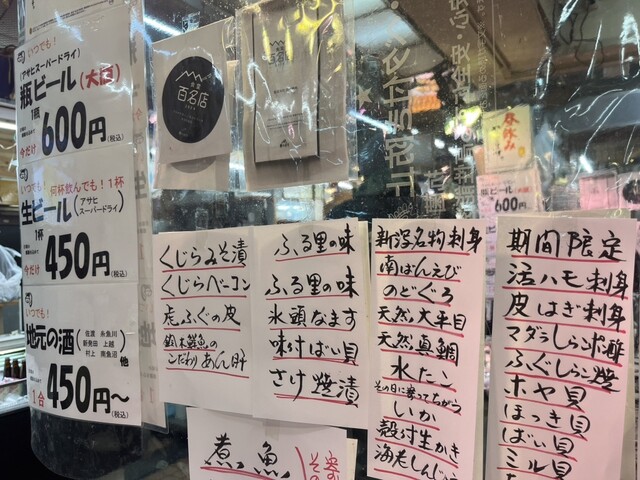 いつでも！
(アサヒスーパードライ)
瓶ビール(大瓶)
1瓶
今だけ
600円
(税込)
いつでも！
何杯飲んでも！1杯
生ビール
(アサヒ
スーパードライ)
1杯
今だけ
450円
(税込)
いつでも！
地元の酒
佐渡 糸魚川
新発田 上越
村上 南魚沼
他
1合
450円〜
(税込)
百名店
昼飲み
600円
くじらみそ漬
くじらベーコン
虎ふぐの皮
鈴木鮮魚の
こだわりあん肝
ふる里の味
ふる里の味
氷頭なます
味付ばい貝
さけ焼漬
新潟名物刺身
南ばんえび
のどぐろ
天然大平目
天然真鯛
水だこ
その日に寄ってちがう
いか
殻付生かき
海老しんじょ
期間限定
活ハモ刺身
皮はぎ刺身
マダラしらこポン酢
ふぐしらこ焼
ホヤ貝
ほっき貝
ばい貝
ミル貝
煮魚